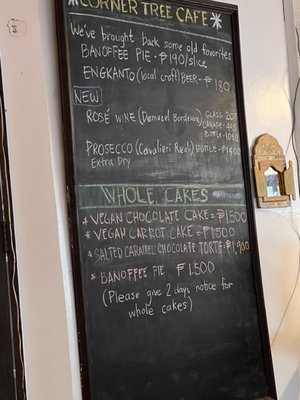 *CORNER TREE CAFE*
We've brought back some old favorites
BANOFFEE PIE - ₱190/slice
ENGKANTO (local craft) BEER - ₱ 180
NEW
ROSÉ WINE (Demazel Bordeaux) GLASS
CARAFE
BOTTLE
PROSECCO (Cavalieri Reali) BOTTLE
Extra Dry
WHOLE CAKES
* VEGAN CHOCOLATE CAKE = ₱1500
* VEGAN CARROT CAKE - ₱1500
* SALTED CARAMEL CHOCOLATE TORTE - ₱1,900
* BANOFFEE PIE ₱1,500
(Please give 2 days notice for
whole cakes)